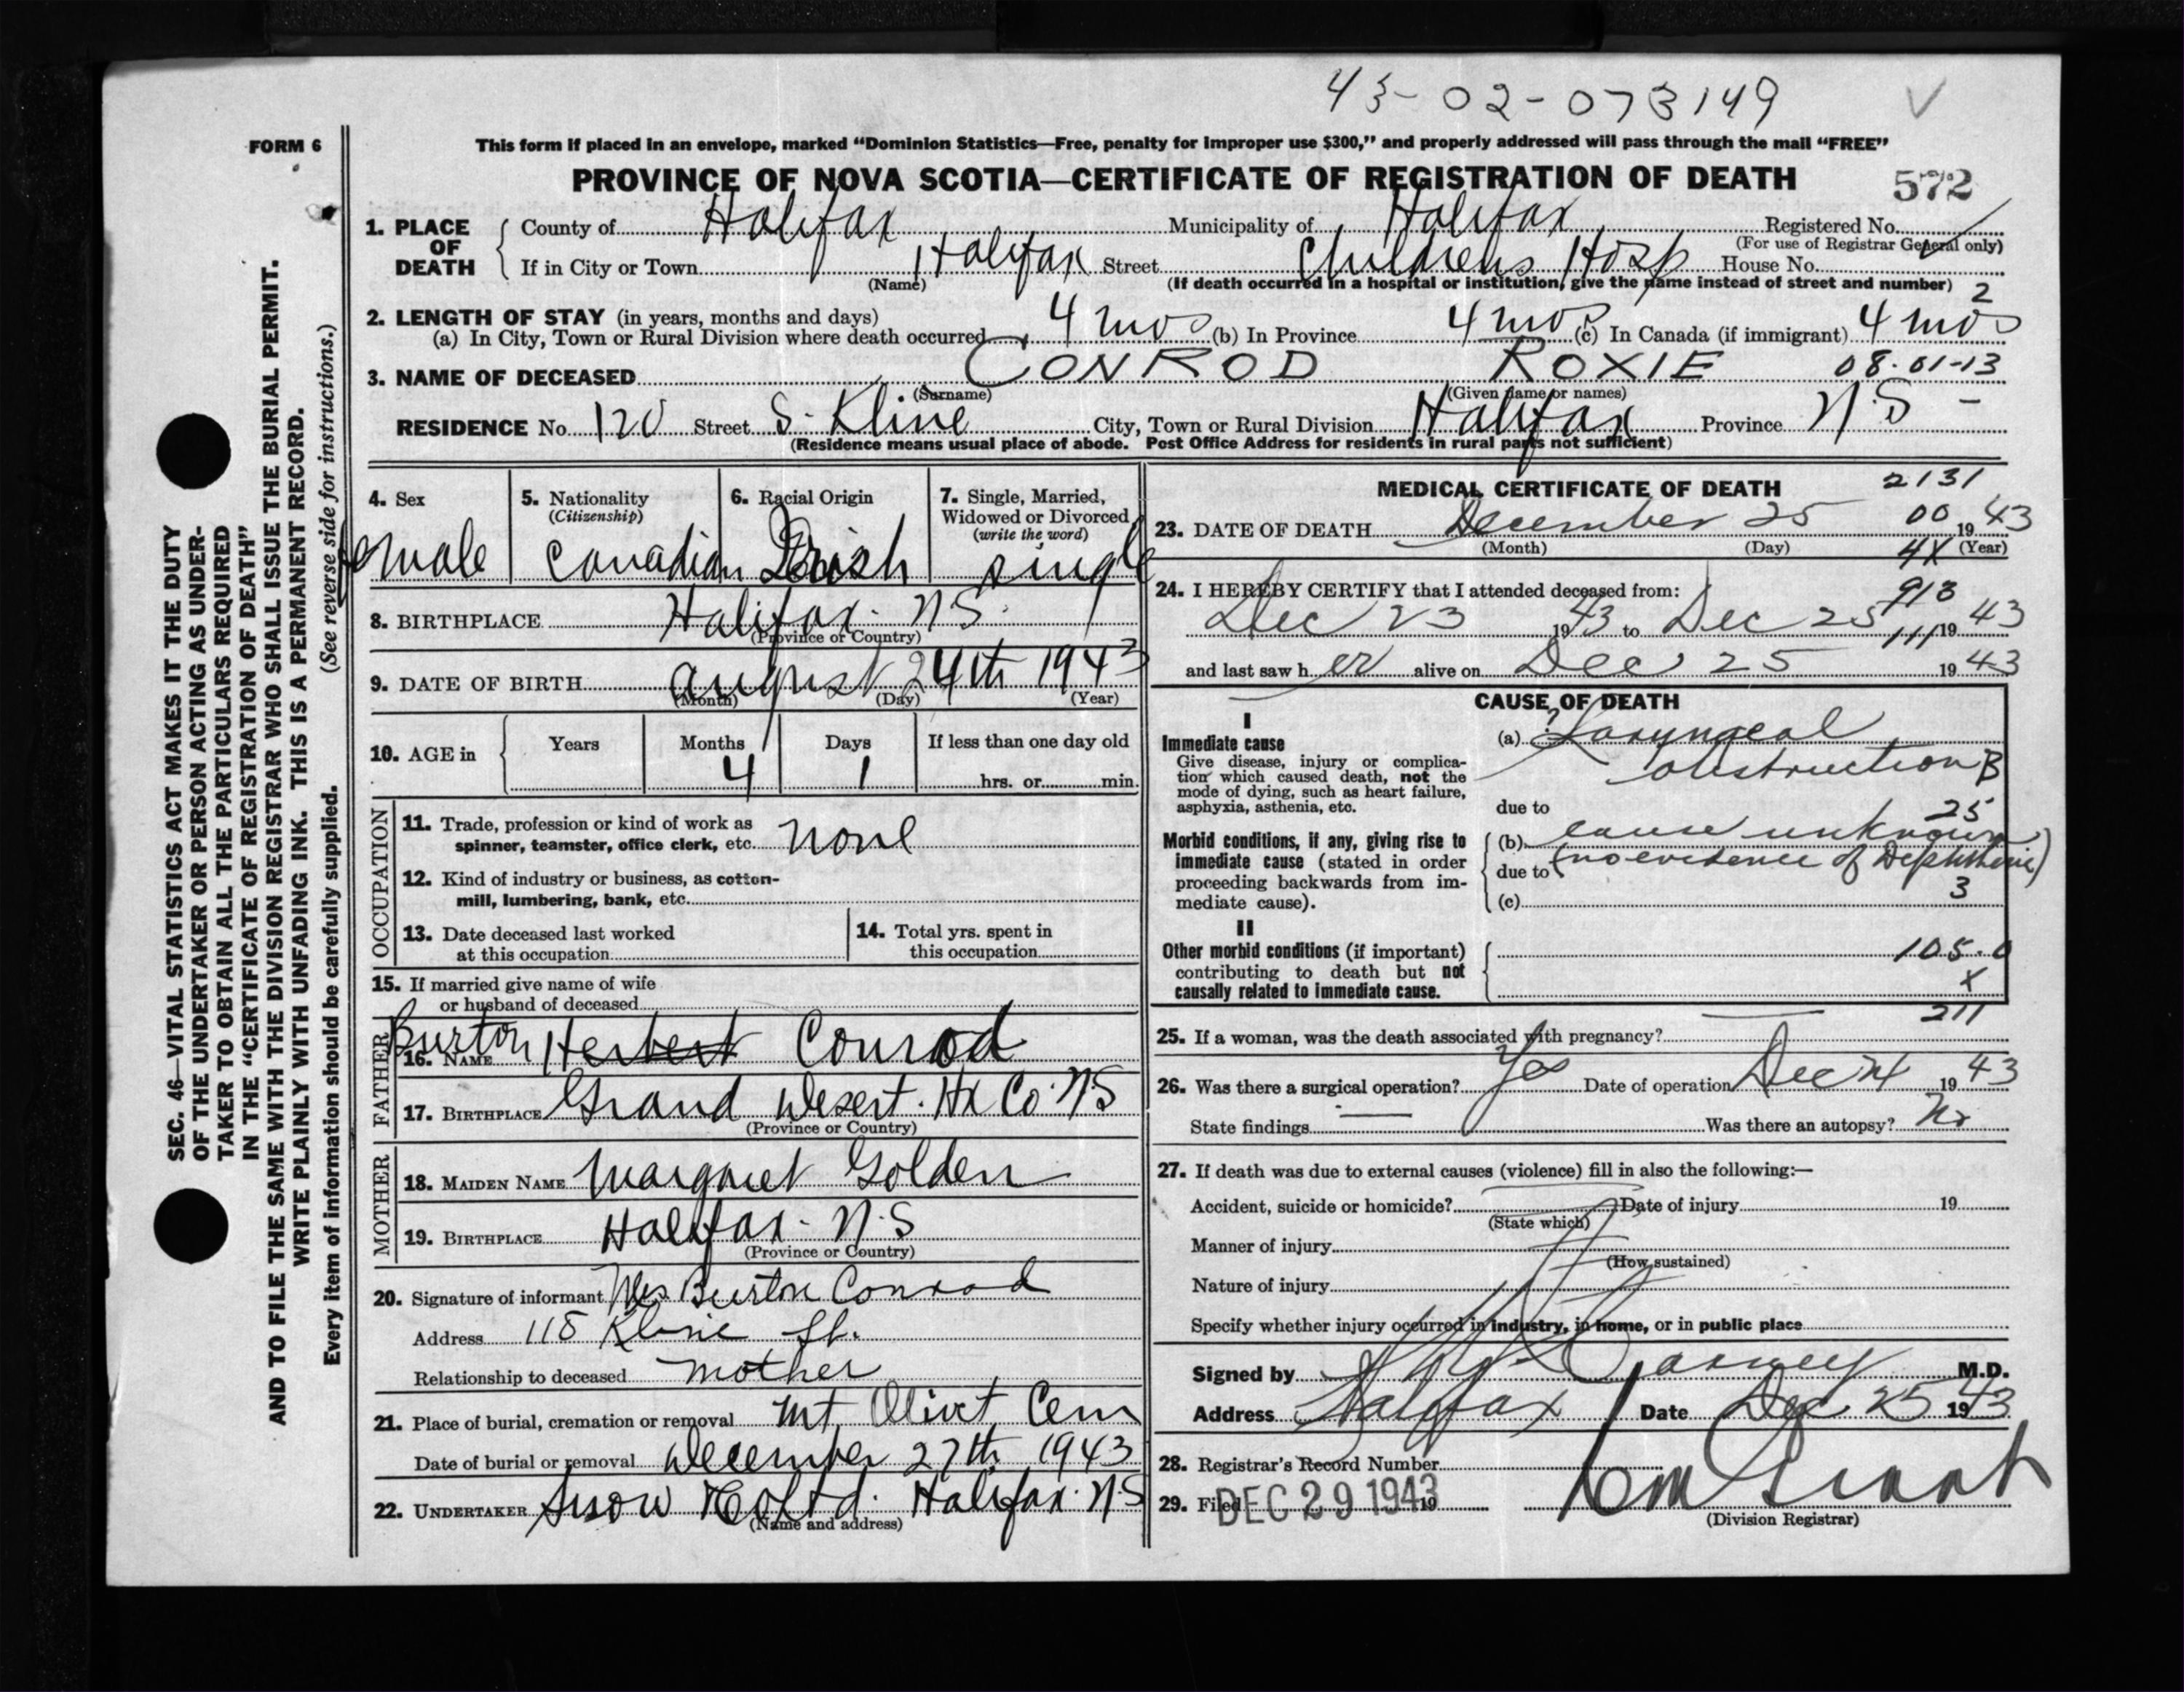 43-02-073149
FORM 6
This form if placed in an envelope, marked “Dominion Statistics—Free, penalty for improper use $300,” and properly addressed will pass through the mail “FREE”
PROVINCE OF NOVA SCOTIA—CERTIFICATE OF REGISTRATION OF DEATH 572
1. PLACE OF DEATH
County of Halifax Municipality of Halifax Registered No.
(For use of Registrar General only)
If in City or Town Halifax Street Childrens Hosp House No.
(Name) (If death occurred in a hospital or institution, give the name instead of street and number) 2
2. LENGTH OF STAY (in years, months and days)
(a) In City, Town or Rural Division where death occurred 4 mos (b) In Province 4 mos (c) In Canada (if immigrant) 4 mos
3. NAME OF DECEASED CONROD ROXIE 08-01-13
(Surname) (Given name or names)
RESIDENCE No. 120 Street S. Kline City, Town or Rural Division Halifax Province N.S -
(Residence means usual place of abode. Post Office Address for residents in rural parts not sufficient)
4. Sex female
5. Nationality (Citizenship) Canadian
6. Racial Origin Irish
7. Single, Married, Widowed or Divorced (write the word) single
8. BIRTHPLACE Halifax. N.S.
(Province or Country)
9. DATE OF BIRTH August 24th 1943
(Month) (Day) (Year)
10. AGE in Years Months 4 Days 1 If less than one day old hrs. or min.
OCCUPATION
11. Trade, profession or kind of work as
spinner, teamster, office clerk, etc. none
12. Kind of industry or business, as cotton-
mill, lumbering, bank, etc.
13. Date deceased last worked
at this occupation
14. Total yrs. spent in
this occupation
15. If married give name of wife
or husband of deceased
FATHER
16. NAME Burton Herbert Conrod
17. BIRTHPLACE Grand Desert. Hx Co. N.S
(Province or Country)
MOTHER
18. MAIDEN NAME Margaret Golden
19. BIRTHPLACE Halifax. N.S
(Province or Country)
20. Signature of informant Mrs Burton Conrod
Address 118 Kline St.
Relationship to deceased mother
21. Place of burial, cremation or removal Mt. Olivet Cem
Date of burial or removal December 27th 1943
22. UNDERTAKER Snow & Co Ltd. Halifax. N.S
(Name and address)
MEDICAL CERTIFICATE OF DEATH 2131
23. DATE OF DEATH December 25 00 1943
(Month) (Day) 4X (Year)
24. I HEREBY CERTIFY that I attended deceased from: 913
Dec 23 1943 to Dec 25 111 1943
and last saw her alive on Dec 25 1943
CAUSE OF DEATH
I
Immediate cause
Give disease, injury or complica-
tion which caused death, not the
mode of dying, such as heart failure,
asphyxia, asthenia, etc.
(a) ? Laryngeal
obstruction B
due to 25
Morbid conditions, if any, giving rise to
immediate cause (stated in order
proceeding backwards from im-
mediate cause).
(b) cause unknown
due to (no evidence of Diphtheria)
(c) 3
II
Other morbid conditions (if important)
contributing to death but not
causally related to immediate cause.
105.0
X
211
25. If a woman, was the death associated with pregnancy?
26. Was there a surgical operation? Yes Date of operation Dec 24 1943
State findings — Was there an autopsy? No
27. If death was due to external causes (violence) fill in also the following:—
Accident, suicide or homicide? Date of injury 19
(State which)
Manner of injury
(How sustained)
Nature of injury
Specify whether injury occurred in industry, in home, or in public place
Signed by M.D.
Address Halifax Date Dec 25 1943
28. Registrar's Record Number
29. Filed DEC 29 1943 19
(Division Registrar)
SEC. 46—VITAL STATISTICS ACT MAKES IT THE DUTY
OF THE UNDERTAKER OR PERSON ACTING AS UNDER-
TAKER TO OBTAIN ALL THE PARTICULARS REQUIRED
IN THE “CERTIFICATE OF REGISTRATION OF DEATH”
AND TO FILE THE SAME WITH THE DIVISION REGISTRAR WHO SHALL ISSUE THE BURIAL PERMIT.
WRITE PLAINLY WITH UNFADING INK. THIS IS A PERMANENT RECORD.
Every item of information should be carefully supplied. (See reverse side for instructions.)